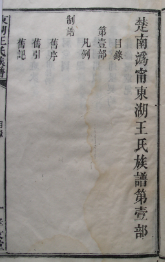 楚南溈甯東湖王氏族譜第壹部
目錄
第壹部
凡例
制誥
舊序
舊引
舊記
東湖王氏族譜
目錄